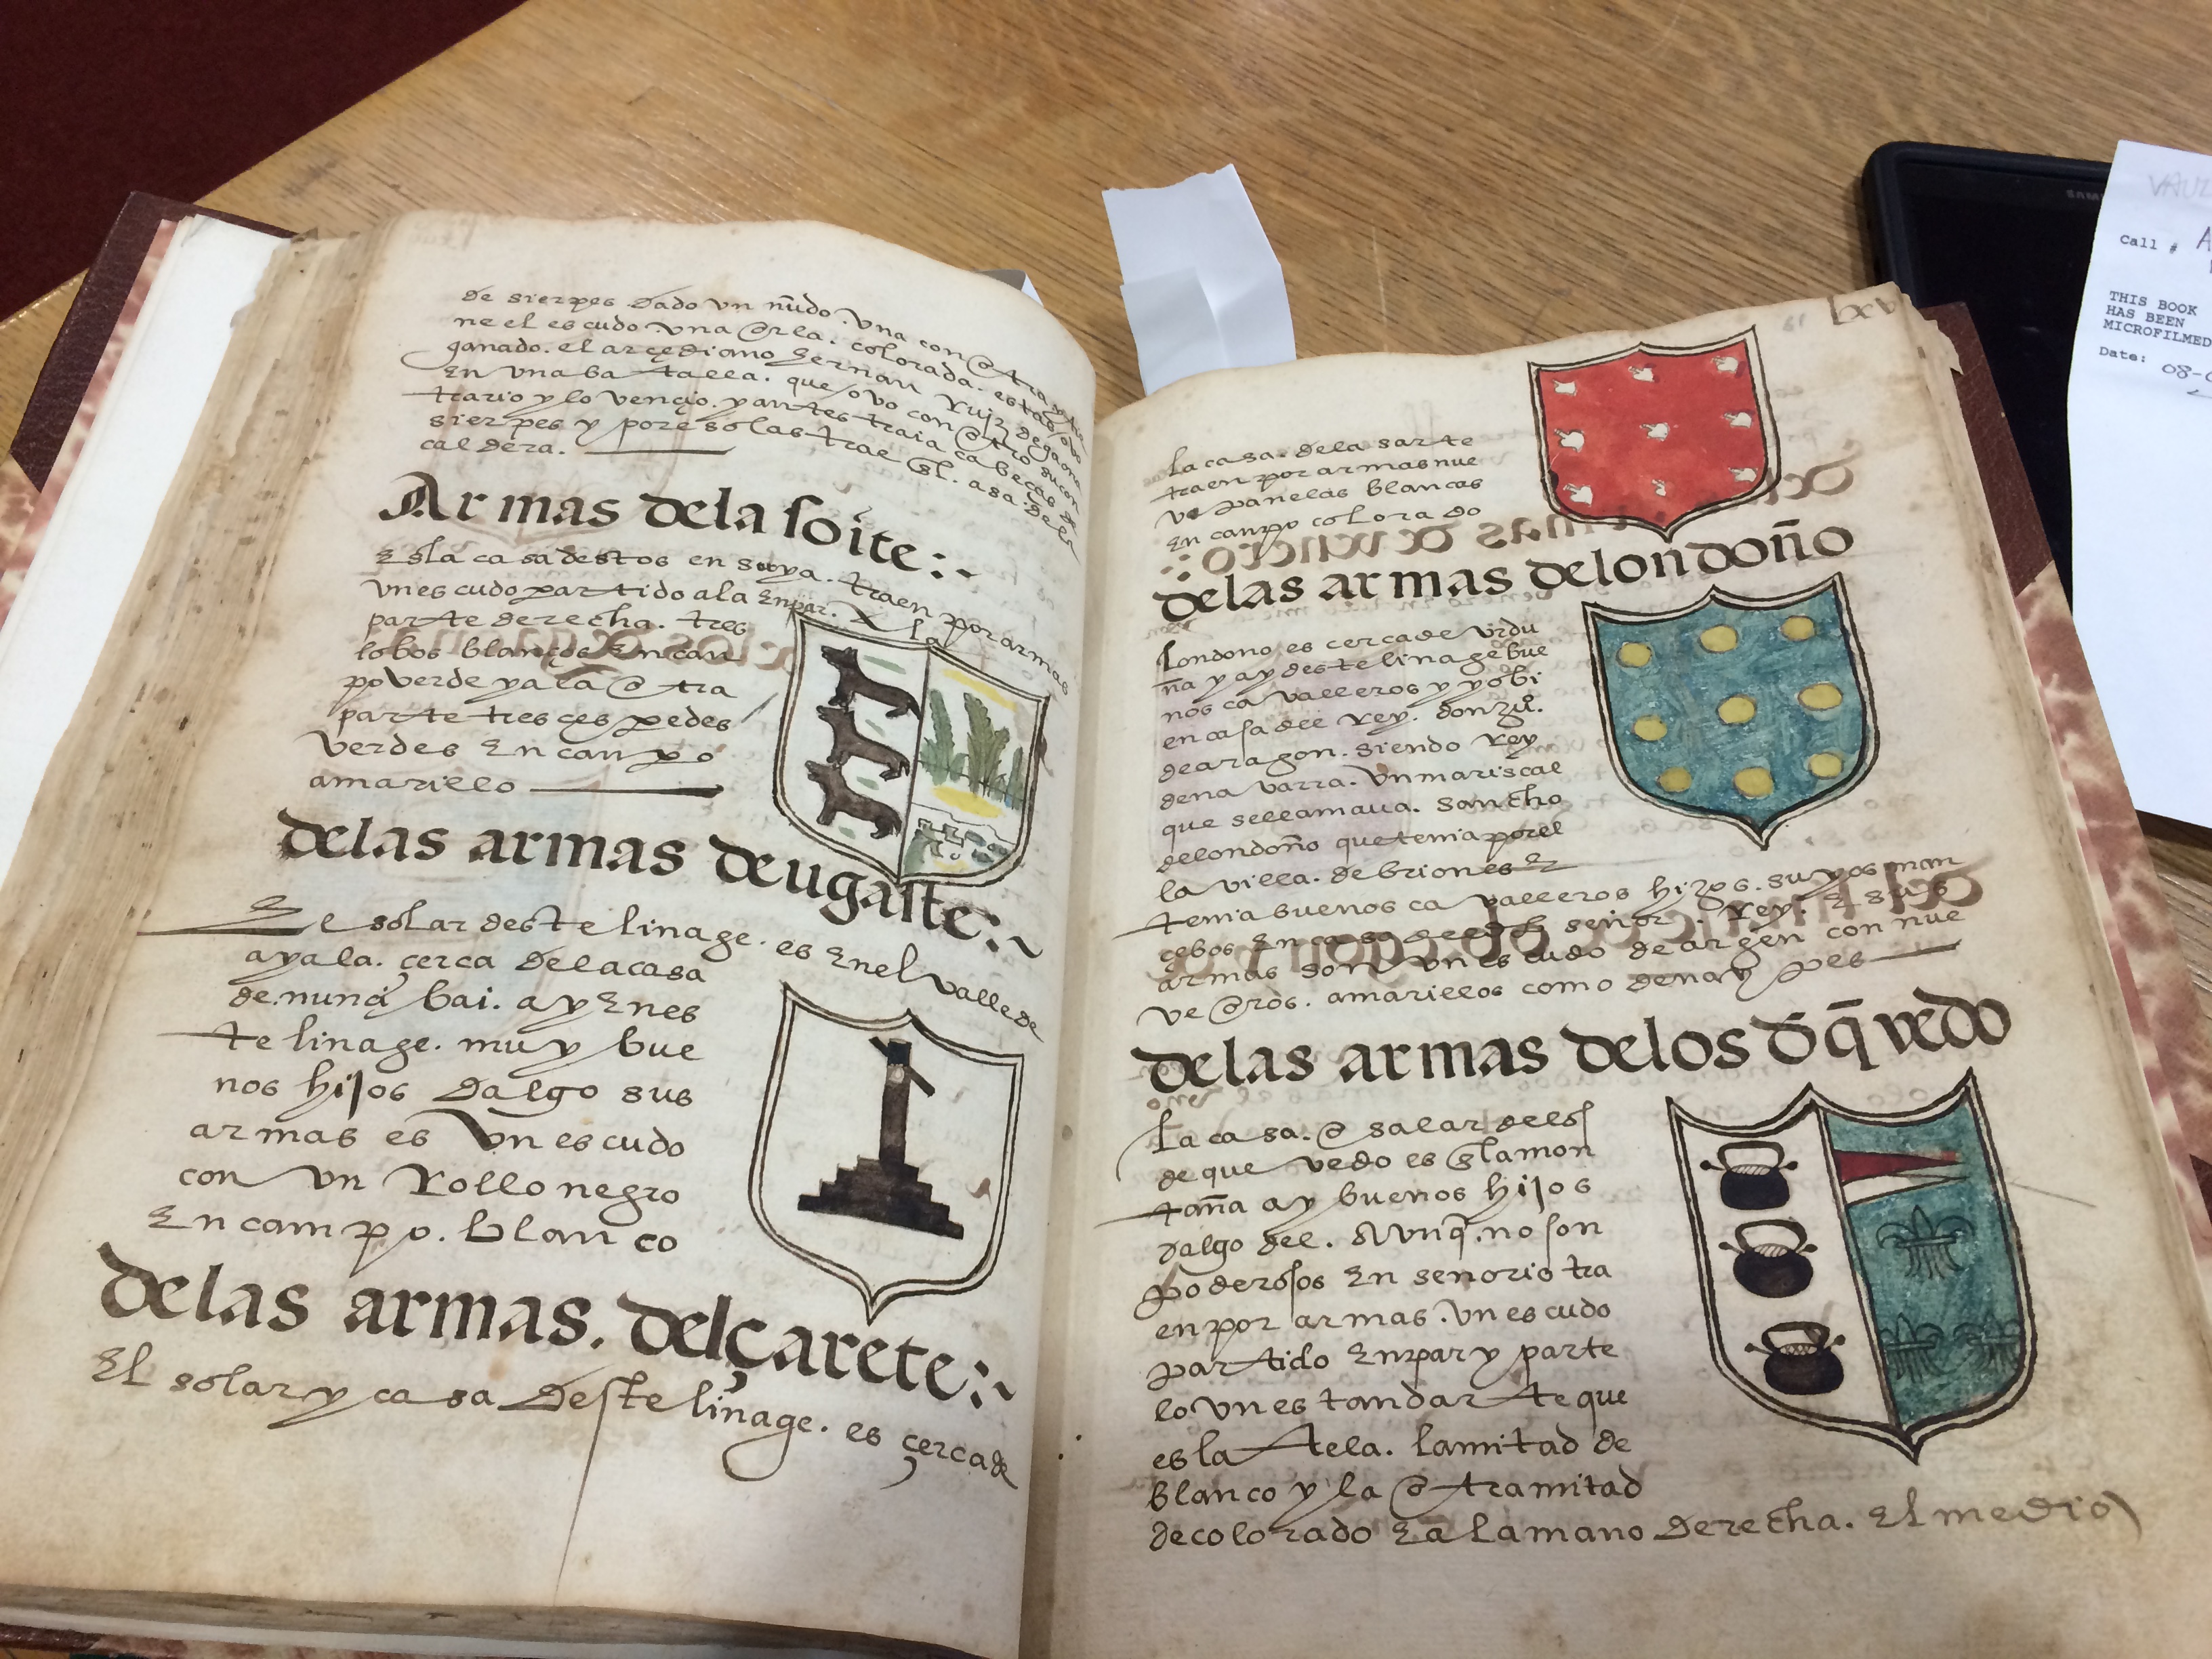 de sierpes dado vn nudo. vna con otra y tie
ne el escudo vna orla. colorada. estas ovo
ganado. el arçediano hernan Ruiz de gaona
en vna batalla. que ovo con otro su con
trario y lo vençio. y antes traia cabeças de
sierpes y por eso las trae el. asa. de la
caldera.
Armas dela soite:~
Es la casa destos en soya. traen por armas
vn escudo partido ala enpar. A la
parte derecha. tres
lobos blancos en can
po verde y a la otra
parte tres çespedes
verdes en canpo
amarillo
delas armas deugaste:~
El solar deste linage. es enel valle de
ayala. çerca dela casa
de nunçibai. ay enes
te linage. muy bue
nos hijos dalgo sus
armas es vn escudo
con vn Rollo negro
en campo. blanco
delas armas. delçarete:~
El solar y casa deste linage. es çerca de
lxv
61
la casa. dela sarte
traen por armas nue
ve panelas blancas
en canpo colorado
delas armas delondoño
Londono es cerca de vrdu
ña y ay deste linage bue
nos cavalleros y yo bi
en casa del Rey. don Ju°.
de aragon. siendo Rey
de navarra. vn mariscal
que sellamava. sancho
delondoño que tenia por el
la villa. de briones E
tenia buenos cavalleros hijos. suyos man
çebos en casa deeste señor. Rey. E sus
armas son vn escudo de argen con nue
ve oros. amarillos como de naypes
delas armas delos dq̃vedo
La casa. o salar delos
de que vedo es en la mon
taña ay buenos hijos
dalgo del. Aunq̃. no son
poderosos en senorio tra
en por armas. vn escudo
partido enpar y parte
lo vn estandarte que
es la tela. la mitad de
blanco y la otra mitad
de colorado E a la mano derecha. El medio
SAMSUNG
Call #
THIS BOOK
HAS BEEN
MICROFILMED
Date: 08-